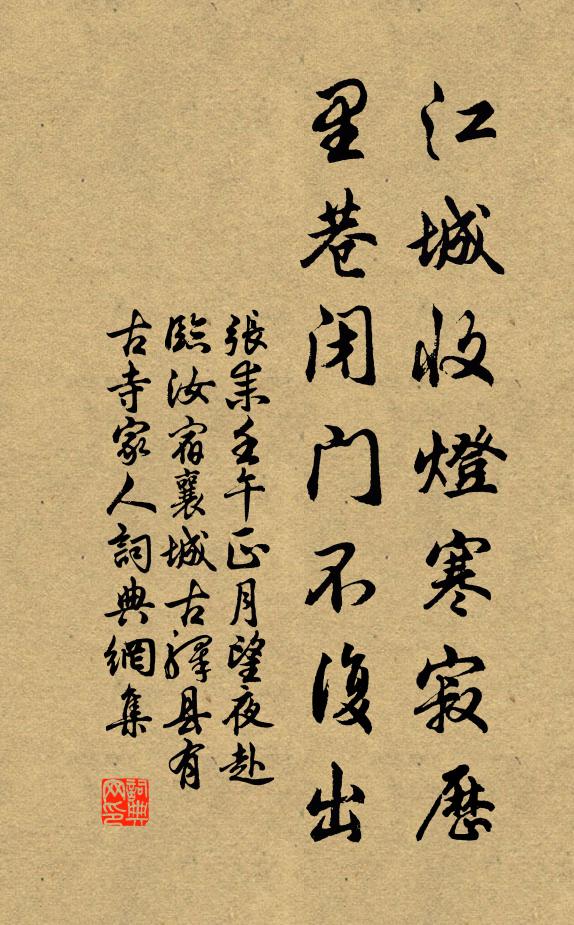 江城收燈寒寂歷
里巷闭门不復出
張耒壬午正月望夜赴
臨汝宿襄城古驛县有
古寺家人詞典網集
詞典网印